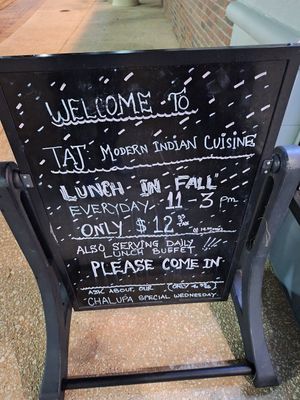 WELCOME TO
TAJ: MODERN INDIAN CUISINE
LUNCH IN FALL
EVERYDAY 11-3 pm
ONLY $12
ALSO SERVING DAILY
LUNCH BUFFET
PLEASE COME IN
ASK ABOUT OUR (ONLY
CHALUPA SPECIAL WEDNESDAY